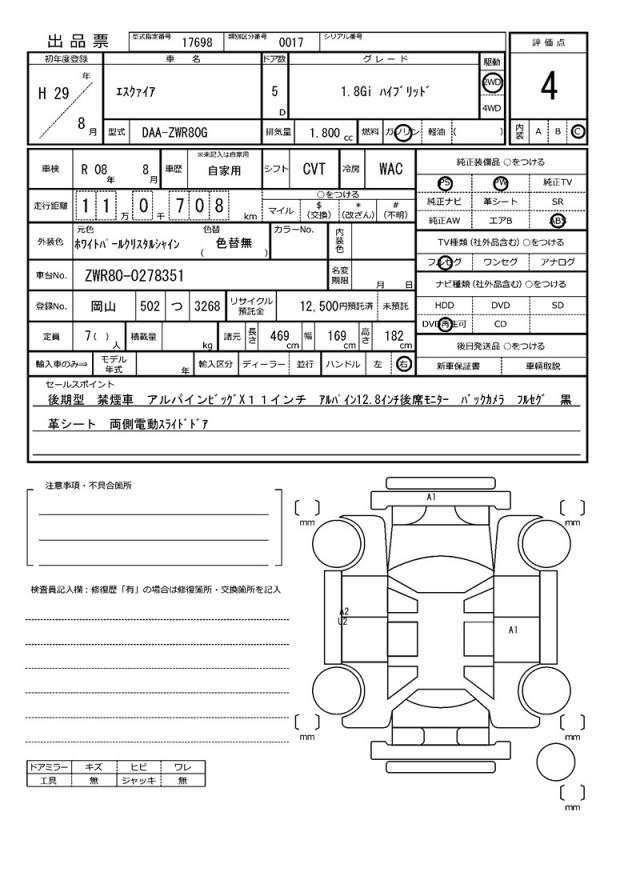 出品票 型式指定番号 17698 類別区分番号 0017 シリアル番号
評価点
初年度登録 車名 ドア数 グレード 駆動
H 29 年 エスクァイア 5 D 1.8Gi ハイブリッド 2WD 4
8 月 4WD
型式 DAA-ZWR80G 排気量 1,800 cc 燃料 ガソリン 軽油 ( ) 内装 A B C
車検 R 08 年 8 月 車歴 ※未記入は自家用 自家用 シフト CVT 冷房 WAC
純正装備品 ○をつける
PS PW 純正TV
走行距離 1 1 万 0 千 7 0 8 km ○をつける
マイル $ (交換) * (改ざん) # (不明)
純正ナビ 革シート SR
純正AW エアB ABS
外装色 元色 ホワイトパールクリスタルシャイン 色替 ( 色替無 ) カラーNo. 内装色
TV種類 (社外品含む) ○をつける
フルセグ ワンセグ アナログ
車台No. ZWR80-0278351 名変期限 月 日
ナビ種類 (社外品含む) ○をつける
登録No. 岡山 502 つ 3268 リサイクル預託金 12,500円預託済 未預託
HDD DVD SD
DVD再生可 CD
定員 7( ) 人 積載量 kg 諸元 長さ 469 cm 幅 169 cm 高さ 182 cm
後日発送品 ○をつける
輸入車のみ⇒ モデル年式 年 輸入区分 ディーラー 並行 ハンドル 左 右
新車保証書 車輌取説
セールスポイント
後期型 禁煙車 アルパインビッグX11インチ アルパイン12.8インチ後席モニター バックカメラ フルセグ 黒
革シート 両側電動スライドドア
注意事項・不具合箇所
A1
mm mm
検査員記入欄：修復歴「有」の場合は修復箇所・交換箇所を記入
A2
U2
A1
mm mm
ドアミラー キズ ヒビ ワレ
工具 無 ジャッキ 無
mm